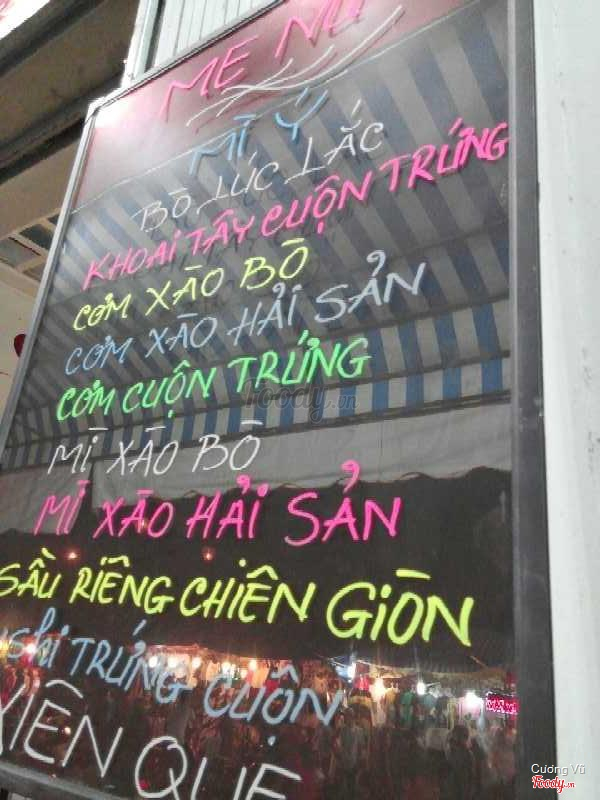 ME NU
MÌ Ý
BÒ LÚC LẮC
KHOAI TÂY CUỘN TRỨNG
CƠM XÀO BÒ
CƠM XÀO HẢI SẢN
CƠM CUỘN TRỨNG
MÌ XÀO BÒ
MÌ XÀO HẢI SẢN
SẦU RIÊNG CHIÊN GIÒN
TRỨNG CUỘN
XIÊN QUE
Foody.vn
Cương Vũ
Foody.vn